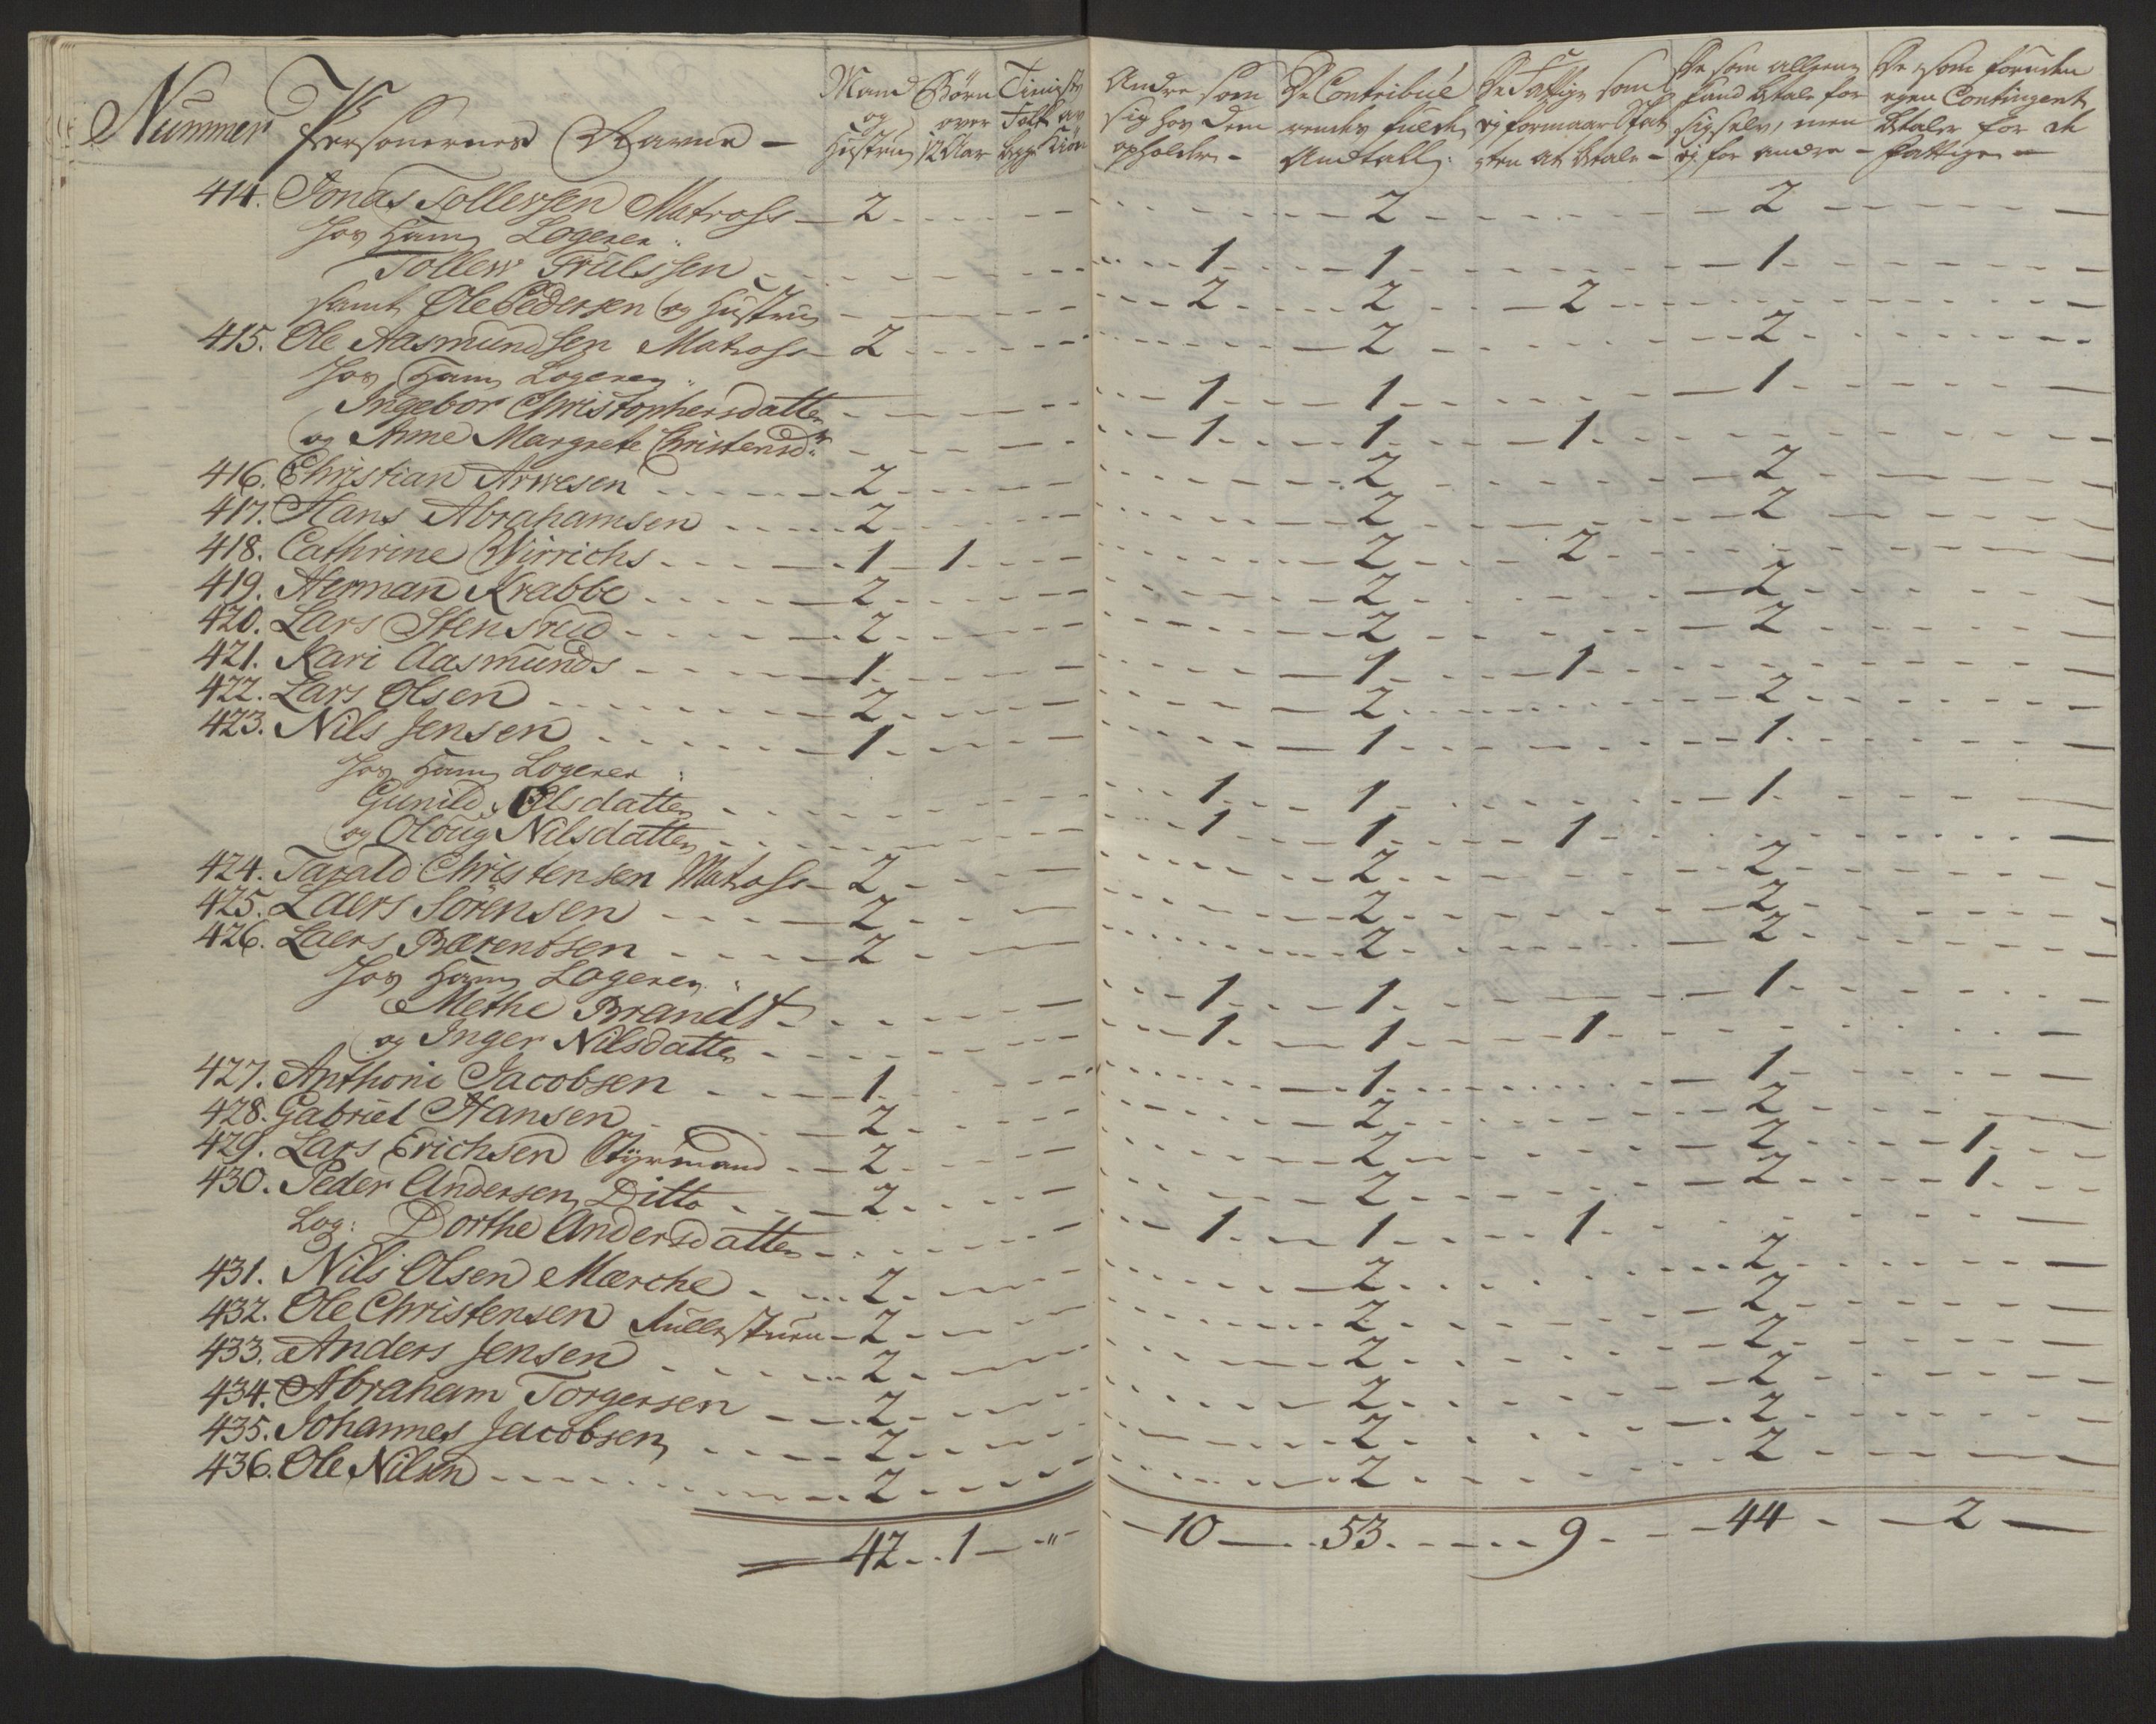 Nummer Personernes Navne - Mand og Hustru Børn over 12 Aar Tieniste Folk av begge Kiøn Andre som sig hos dem opholder - De Contribuerendes fulde Andtall. De Fattige som ej formaar Skatten at betale - De som alleene kand betale for sig selv, men ej for andre - De som foruden egen Contingent betaler for de fattige -
414. Jonas Tollefsen Matross 2 2 2
hos ham Logerer
Tollew Truelssen 1 1 1
samt Ole Pedersen og Hustru 2 2 2
415. Ole Aasmundsen Matross 2 2 2
hos ham Logerer
Ingebor Christophersdatter 1 1 1
og Anne Margrete Christensdr 1 1 1
416. Christian Arwesen 2 2 2
417. Hans Abrahamsen 2 2 2
418. Cathrine Wirrichs 1 1 2 2
419. Herman Krabbe 2 2 2
420. Lars Stensrud 2 2 2
421. Kari Aasmunds 1 1 1
422. Lars Olsen 2 2 2
423. Nils Jensen 1 1 1
hos ham Logerer
Gunild Olsdatter 1 1 1
og Oloug Nilsdatter 1 1 1
424. Tarald Christensen Matross 2 2 2
425. Laers Sørensen 2 2 2
426. Laers Bærentsen 2 2 2
hos ham Logerer
Methe Brandt 1 1 1
og Inger Nilsdatter 1 1 1
427. Anthoni Jacobsen 1 1 1
428. Gabriel Hansen 2 2 2
429. Lars Erichsen Styrmand 2 2 2 1
430. Peder Andersen Ditto 2 2 2 1
Log: Dorthe Andersdatter 1 1 1
431. Nils Olsen Mærche 2 2 2
432. Ole Christensen 2 2 2
433. Anders Jensen 2 2 2
434. Abraham Torgersen 2 2 2
435. Johannes Jacobsen 2 2 2
436. Ole Nilsen 2 2 2
42 1 " 10 53 9 44 2